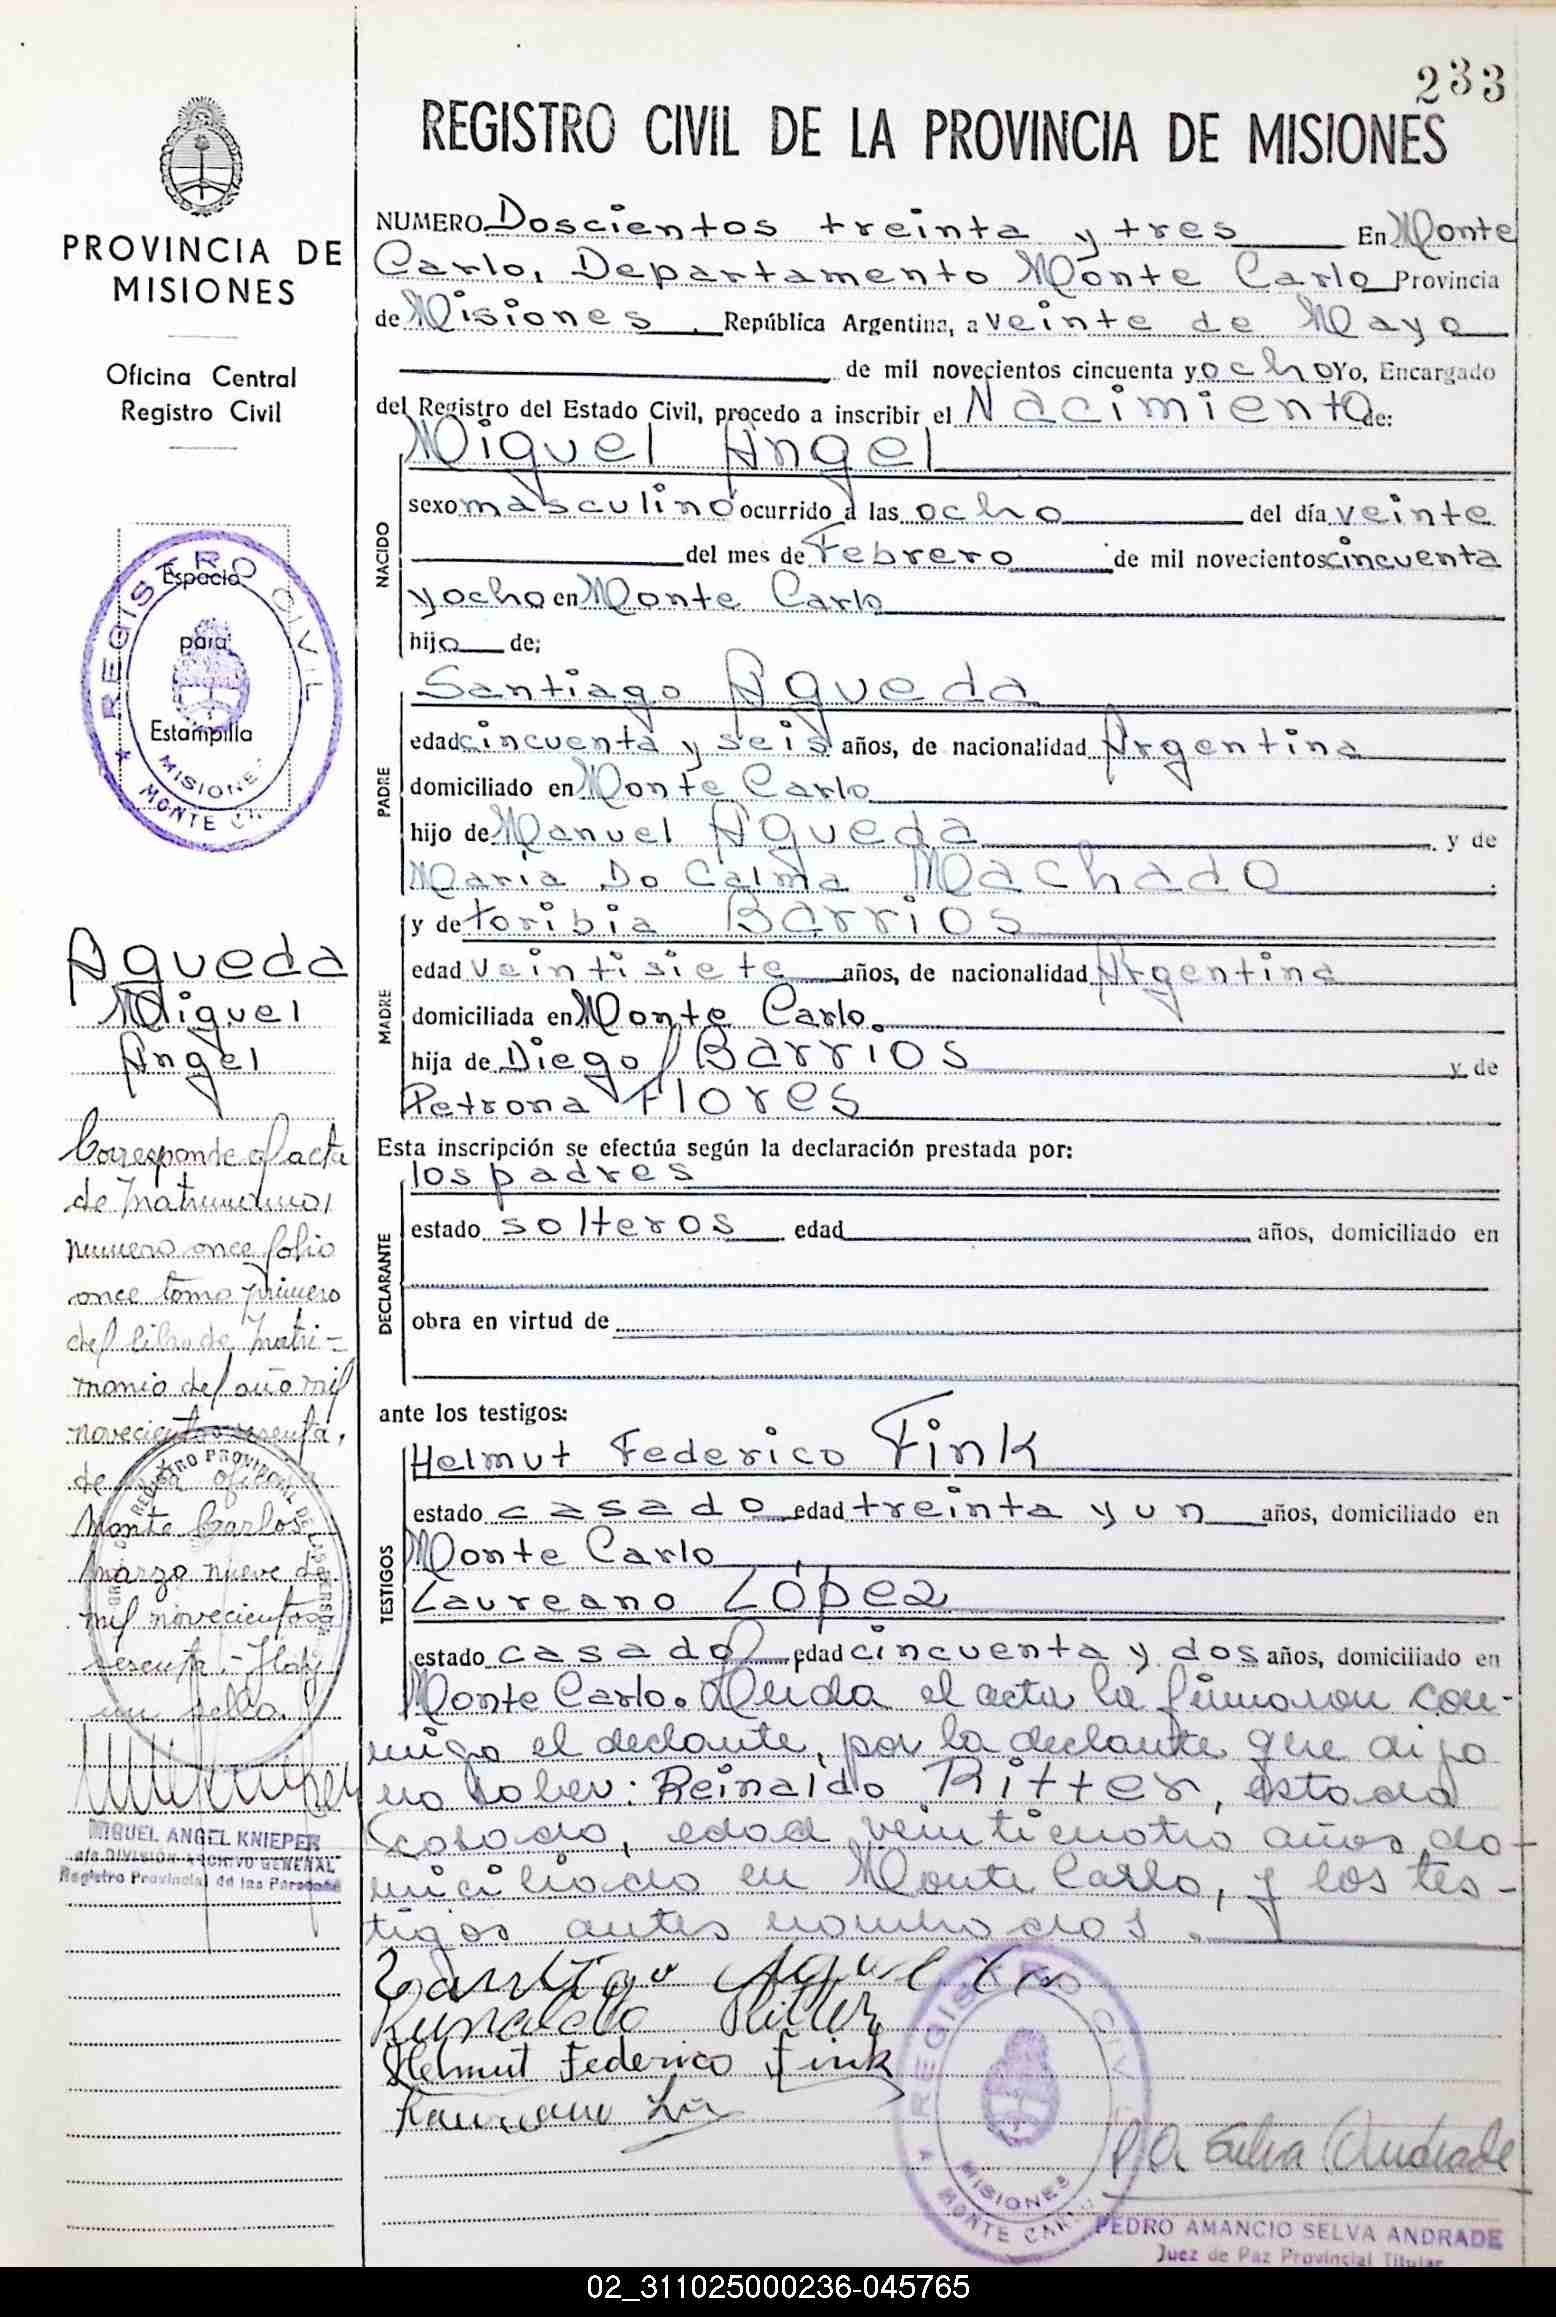 233
REGISTRO CIVIL DE LA PROVINCIA DE MISIONES
PROVINCIA DE
MISIONES
Oficina Central
Registro Civil
REGISTRO CIVIL
Espacio
para
Estampilla
MISIONE
MONTE C
Agueda
Miguel
Angel
Corresponde al acta
de Matrimonio,
numero once folio
once tomo primero
del libro de Matri-
monio del año mil
novecientos sesenta,
de
Monte Carlos
marzo nueve de
mil novecientos
sesenta.- Hay
un sello.
MIGUEL ANGEL KNIEPER
a/c DIVISIÓN ARCHIVO GENERAL
Registro Provincial de las Personas
NUMERO Doscientos treinta y tres En Monte
Carlo, Departamento Monte Carlo Provincia
de Misiones, República Argentina, a veinte de Mayo
de mil novecientos cincuenta y ocho Yo, Encargado
del Registro del Estado Civil, procedo a inscribir el Nacimiento de:
NACIDO
Miguel Angel
sexo masculino ocurrido a las ocho del día veinte
del mes de Febrero de mil novecientos cincuenta
y ocho en Monte Carlo
hijo de;
PADRE
Santiago Agueda
edad cincuenta y seis años, de nacionalidad Argentina
domiciliado en Monte Carlo
hijo de Manuel Agueda y de
Maria Do Calma Machado
MADRE
y de toribia Barrios
edad veintisiete años, de nacionalidad Argentina
domiciliada en Monte Carlo.
hija de Diego Barrios y de
Petrona Flores
Esta inscripción se efectúa según la declaración prestada por:
DECLARANTE
los padres
estado solteros edad años, domiciliado en
obra en virtud de
ante los testigos:
TESTIGOS
Helmut Federico Fink
estado casado edad treinta y un años, domiciliado en
Monte Carlo
Laureano López
estado casado edad cincuenta y dos años, domiciliado en
Monte Carlo. Leida el acta la firmaron con-
migo el declante, por la declante que dijo
no saber: Reinaldo Ritter, estado
casado, edad veinticuatro años do-
miciliado en Monte Carlo, y los tes-
tigos antes nombrados.
Santiago Agueda
Reinaldo Ritter
Helmut Federico Fink
Laureano
REGISTRO CIVIL
MISIONES
MONTE CARLO
P. A. Selva Andrade
PEDRO AMANCIO SELVA ANDRADE
Juez de Paz Provincial Titular
02_311025000236-045765